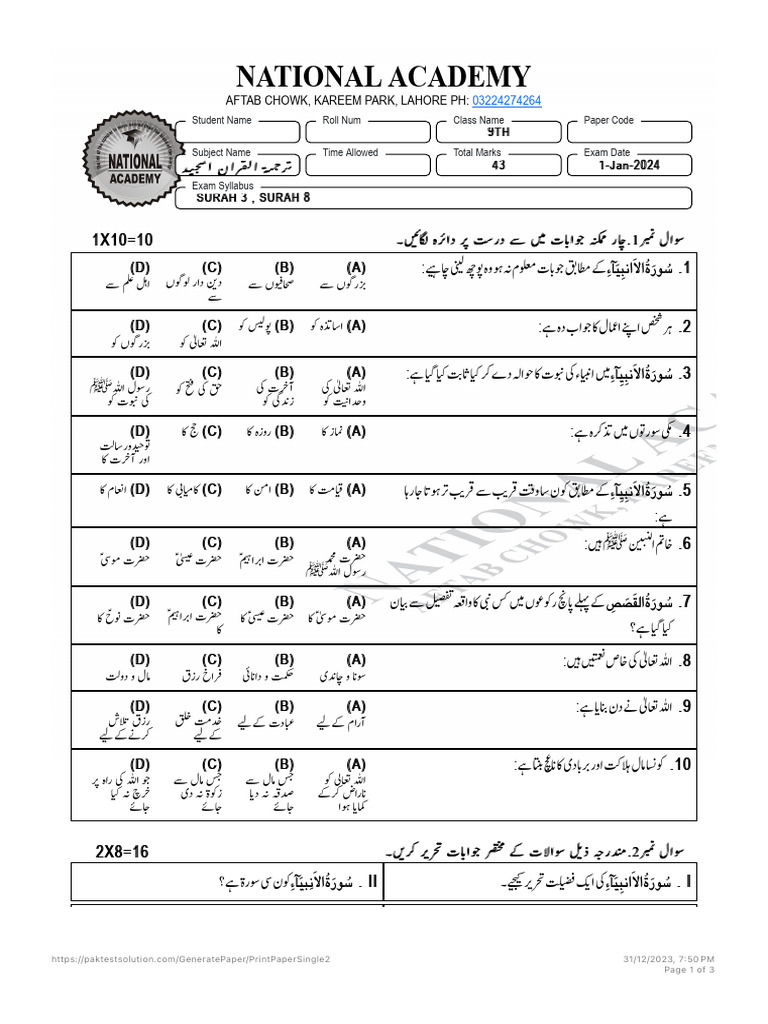 NATIONAL ACADEMY
AFTAB CHOWK, KAREEM PARK, LAHORE PH: 03224274264
NATIONAL
ACADEMY
Student Name
Roll Num
Class Name
9TH
Paper Code
Subject Name
ترجمۃ القران المجید
Time Allowed
Total Marks
43
Exam Date
1-Jan-2024
Exam Syllabus
SURAH 3 , SURAH 8
سوال نمبر1.چار ممکنہ جوابات میں سے درست پر دائرہ لگائیں۔ 1X10=10
1. سُورَۃُالاَنبِیَآءِکے مطابق جو بات معلوم نہ ہو وہ پوچھ لینی چاہیے:
(A) (B) (C) (D)
بزرگوں سے صحافیوں سے دین دار لوگوں اہل علم سے
سے
2. ہر شخص اپنے اعمال کا جواب دہ ہے: (A) اساتذہ کو (B) پولیس کو (C) (D)
اللہ تعالٰی کو بزرگوں کو
3. سُورَۃُالاَنبِیَآءِمیں انبیاء کی نبوت کا حوالہ دے کر کیا ثابت کیا گیا ہے:
(A) (B) (C) (D)
اللہ تعالٰی کی آخرت کی حق کی فتح کو رسول اللہﷺ
وحدانیت کو زندگی کو کی نبوت کو
4. مکی سورتوں میں تذکرہ ہے: (A) نماز کا (B) روزہ کا (C) حج کا (D)
توحیدورسالت
اور آخرت کا
5. سُورَۃُالاَنبِیَآءِکے مطابق کون سا وقت قریب سے قریب تر ہوتا جارہا (A) قیامت کا (B) امن کا (C) کامیابی کا (D) انعام کا
ہے:
6. خاتم النبیین ﷺہیں:
(A) (B) (C) (D)
حضرت محمد حضرت ابراہیمؑ حضرت عیسیٰؑ حضرت موسیٰؑ
رسول اللہﷺ
7. سُورَۃُالقَصَصِ کے پہلے پانچ رکوعوں میں کس نبی کا واقعہ تفصیل سے بیان
کیا گیا ہے؟
(A) (B) (C) (D)
حضرت موسیٰؑ کا حضرت عیسیٰؑ کا حضرت ابراہیمؑ حضرت نوحؑ کا
کا
8. اللہ تعالٰی کی خاص نعمتیں ہیں: (A) (B) (C) (D)
سونا و چاندی حکمت و دانائی فراخ رزق مال و دولت
9. اللہ تعالٰی نے دن بنایا ہے: (A) (B) (C) (D)
آرام کے لیے عبادت کے لیے خدمت خلق رزق تلاش
کے لیے کرنے کے لیے
10. کونسا مال ہلاکت اور بربادی کا نتائج بنتا ہے: (A) (B) (C) (D)
اللہ تعالٰی کو جس مال سے جس مال سے جو اللہ کی راہ پر
ناراض کرکے صدقہ نہ دیا زکوۃ نہ دی خرچ نہ کیا
کمایا ہوا جائے جائے جائے
سوال نمبر2.مندرجہ ذیل سوالات کے مختصر جوابات تحریر کریں۔ 2X8=16
I . سُورَۃُالاَنبِیَآءِکی ایک فضیلت تحریر کیجیے۔
II . سُورَۃُالاَنبِیَآءِکون سی سورۃ ہے؟
https://paktestsolution.com/GeneratePaper/PrintPaperSingle2
31/12/2023, 7:50 PM
Page 1 of 3